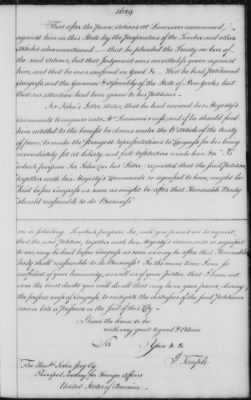 1689
That after the Peace, Actions at
against him in this State by the Proprietors of the Timber and other
Articles abovementioned — that he pleaded the Treaty in bar of
the said Actions, but that Judgment was nevertheless given against
him, and that he was confined in Gaol &c. That he had Petitioned
Congress and the Governor & Assembly of the State of New York, but
that no attention had been given to his Petitions.
Sir John's Letter states, that he had received his Majesty's
Commands to enquire into case, and if he should find
him entitled to the benefit he claims under the Article of the treaty
of peace, to make the strongest representations to Congress for his being
immediately set at liberty and full restitution made him &c. "For
which purpose Sir John in his Letter requested that the said Petition,
together with his Majesty's Commands so signified to him, might be
laid before Congress as soon as might be after that Honorable Body
should reassemble to do Business"
me in so doing. To which purpose Sir, will you permit me to request,
that the said Petition, together with his Majesty's Commands so signified
to me may be laid before Congress as soon as may be after that Honorable
body shall reassemble to do Business? In the mean time I am so
confident of your humanity, as well as of your Justice, that I have not
even the least doubt you will do all that may be in your power, during
the recess of Congress, to mitigate the distresses of the said Petitioner
who is now a Prisoner in the Jail of this City —
I have the honor to be
with very great regard & Esteem
Sir
Yours &c &c
J. Temple
The Honble. John Jay Esq.
Principal Secretary for Foreign Affairs
United States of America —